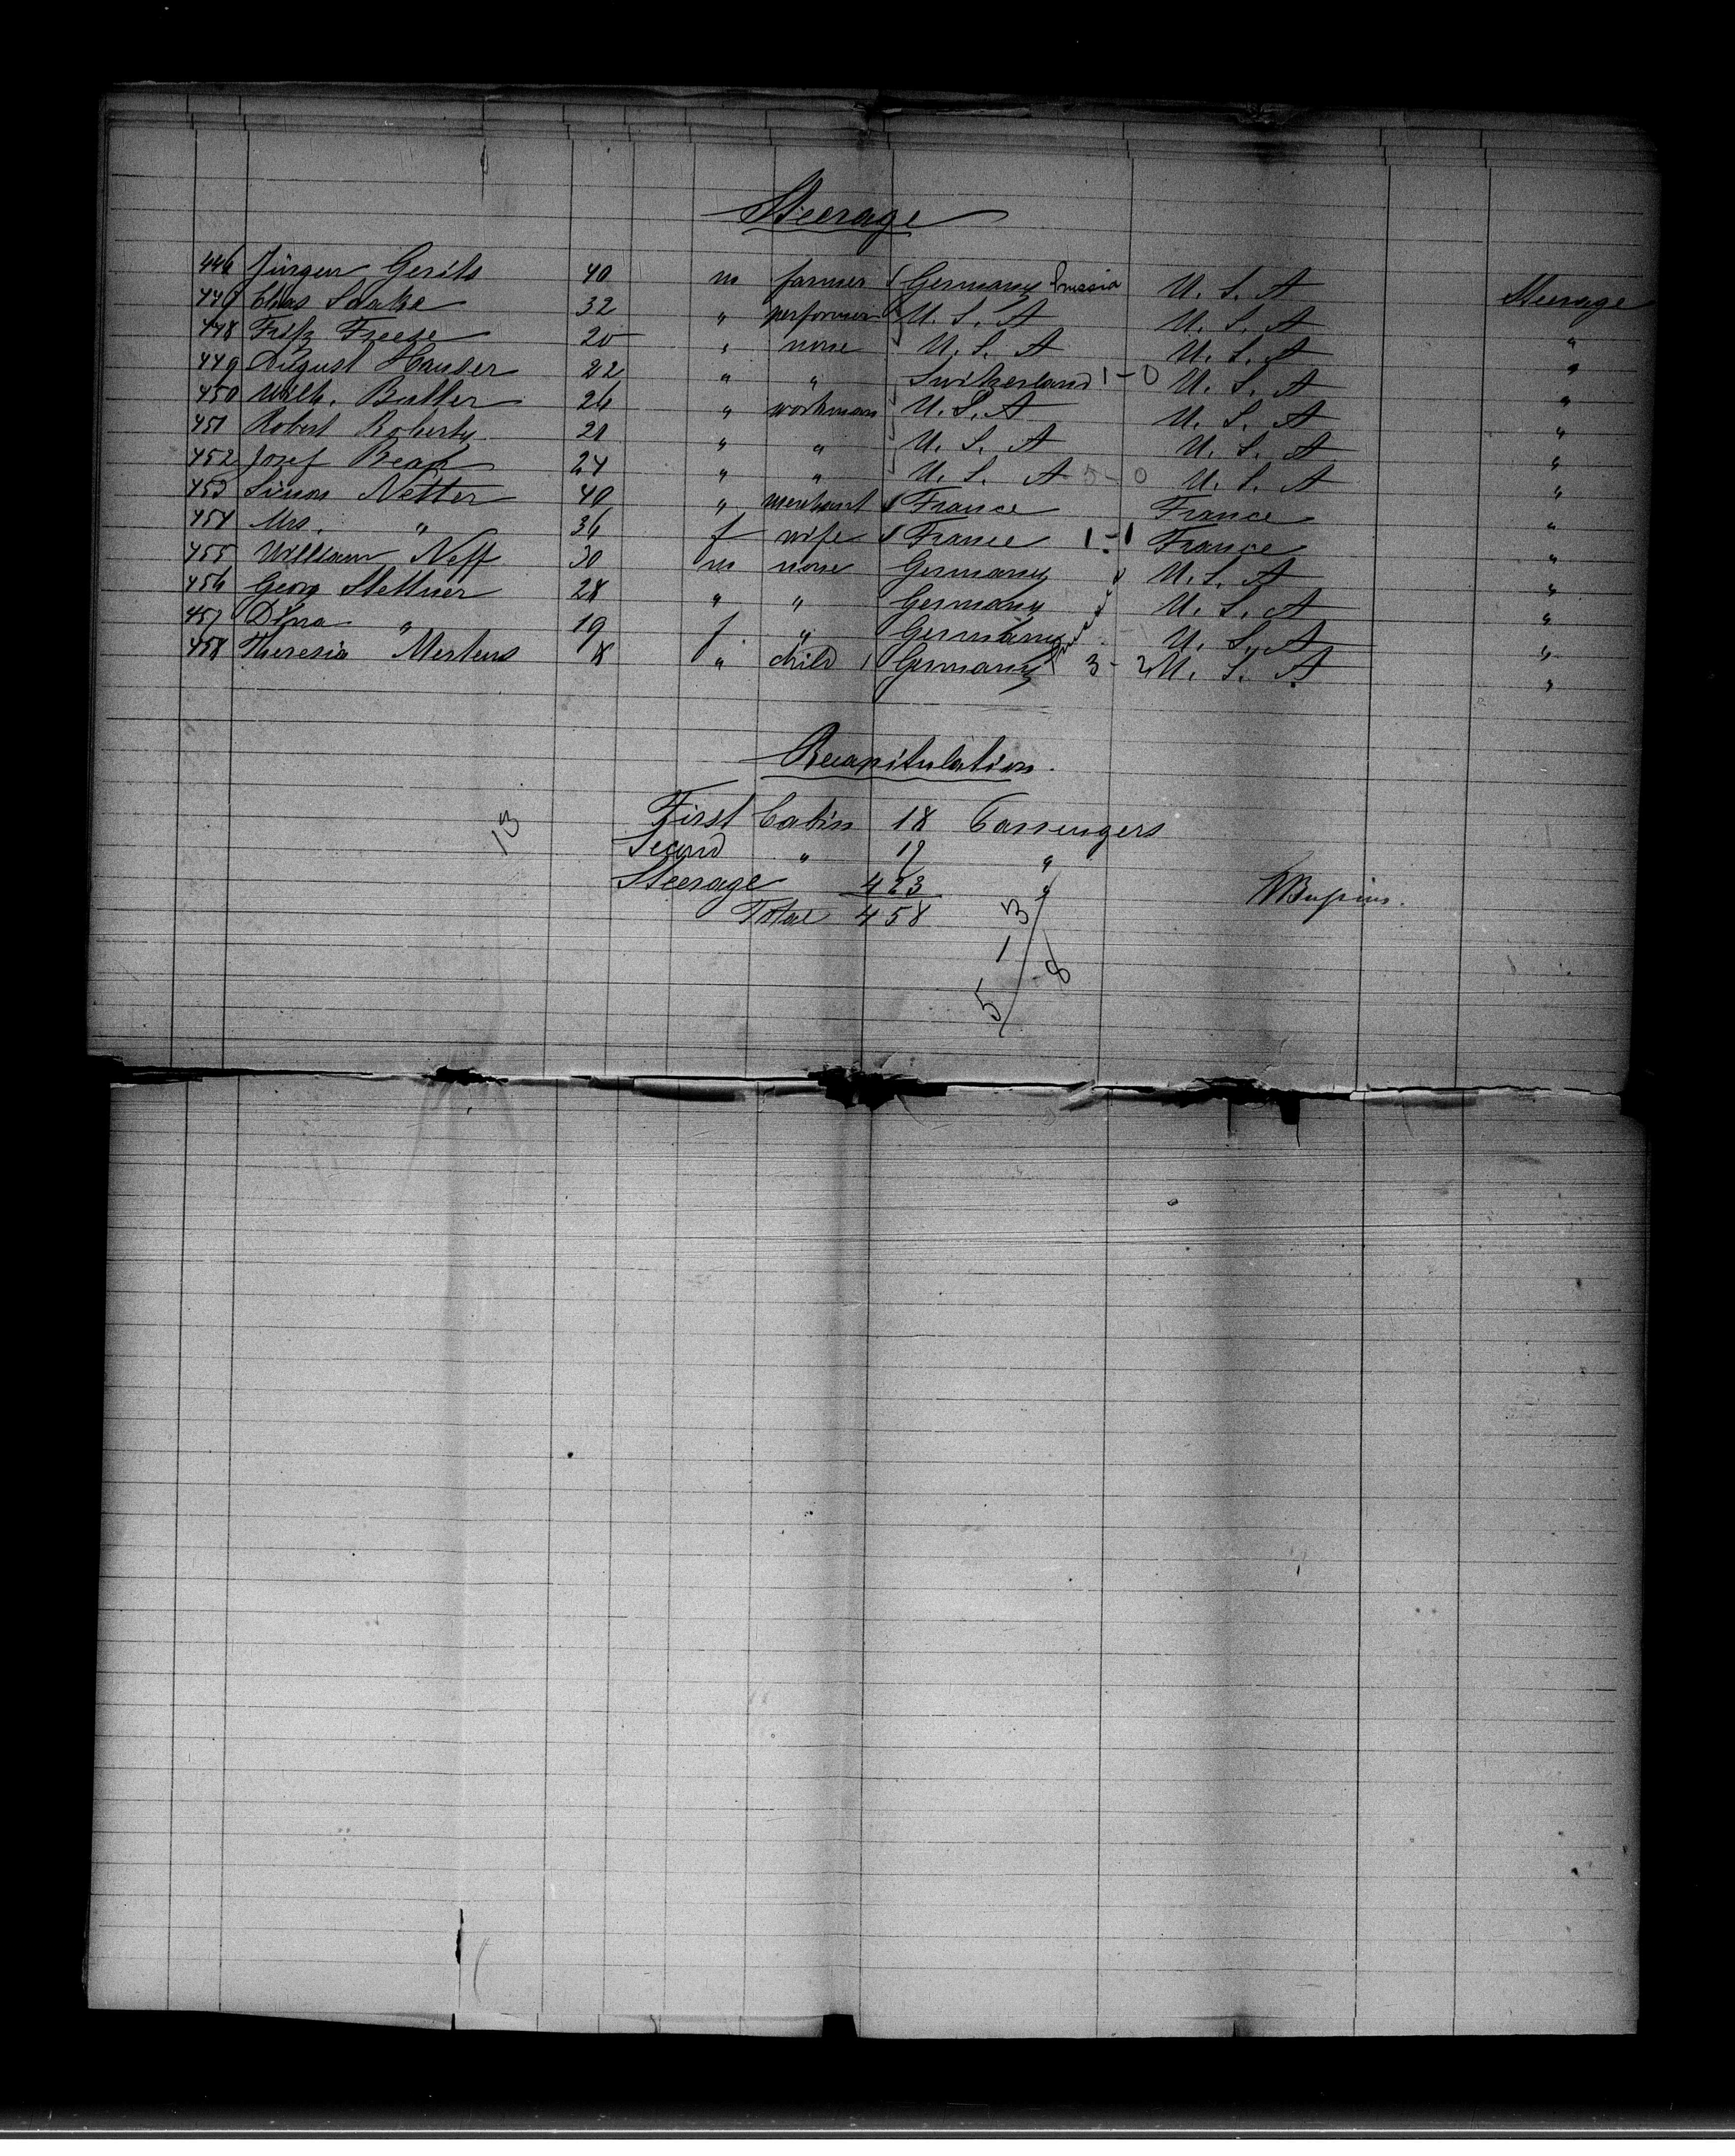 Steerage
446 Jürgen Gerits 40 m farmer Germany Prussia U. S. A Steerage
447 Chas Snake 32 " performer U. S. A U. S. A "
448 Fritz Freese 20 " none U. S. A U. S. A "
449 August Hauser 22 " " Switzerland 1-0 U. S. A "
450 Wilh. Butler 26 " workman U. S. A U. S. A "
451 Robert Roberty 21 " " U. S. A U. S. A "
452 Josef 24 " " U. S. A 5-0 U. S. A "
453 Simon Netter 40 " merchant France France "
454 Mrs. " 36 f wife France 1-1 France "
455 William Neff 30 m none Germany U. S. A "
456 Georg Stettner 28 " " Germany U. S. A "
457 " 19 f " Germany U. S. A "
458 Theresia Mertens 8 " child Germany 3-2 U. S. A "
Recapitulation.
First Cabin 18 Passengers
Second " 17 "
Steerage 423 "
Total 458
13
3
1
8
5